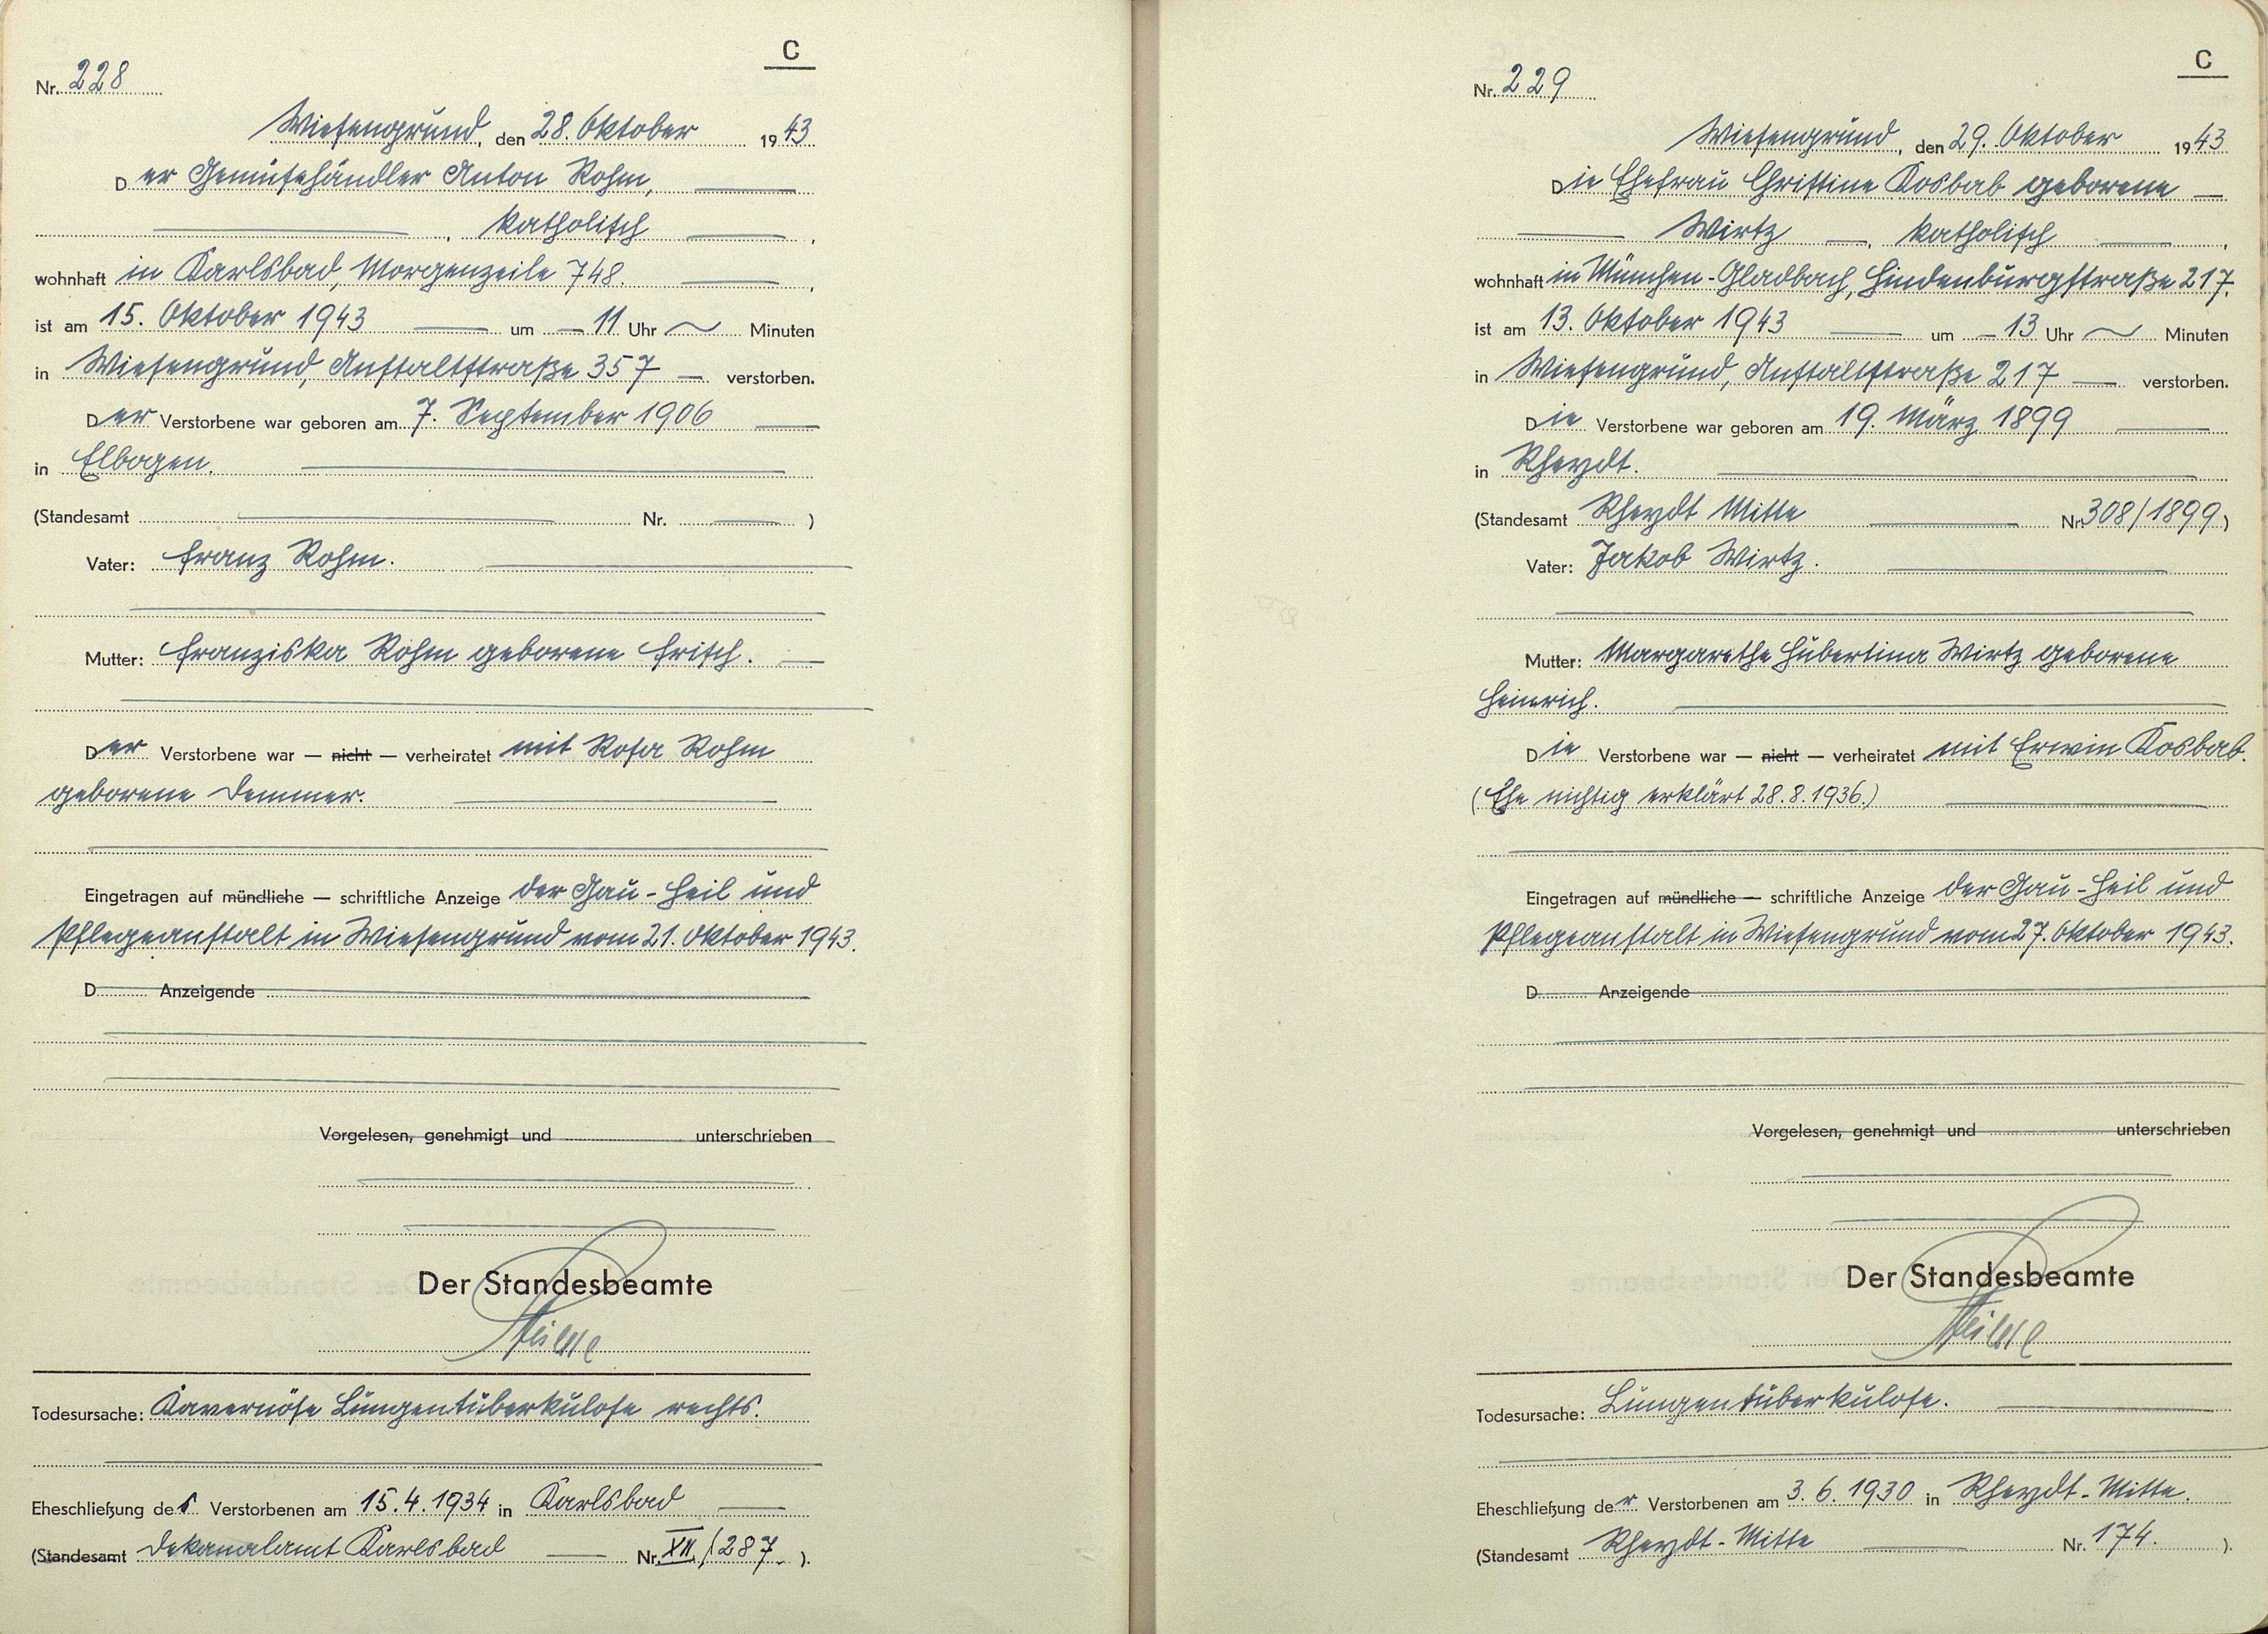 C
Nr. 228
Wiesengrund, den 28. Oktober 1943
Der Gemüsehändler Anton Rohm,
, katholisch ,
wohnhaft in Karlsbad, Morgenzeile 748. ,
ist am 15. Oktober 1943 um 11 Uhr Minuten
in Wiesengrund, Anstaltstraße 357 verstorben.
Der Verstorbene war geboren am 7. September 1906
in Elbogen.
(Standesamt Nr. )
Vater: Franz Rohm.
Mutter: Franziska Rohm geborene Frisch.
Der Verstorbene war — nicht — verheiratet mit Rosa Rohm
geborene Demmer.
Eingetragen auf mündliche — schriftliche Anzeige der Gau-Heil und
Pflegeanstalt in Wiesengrund vom 21. Oktober 1943.
D Anzeigende
Vorgelesen, genehmigt und unterschrieben
Der Standesbeamte
Todesursache: Kavernöse Lungentüberkulose rechts.
Eheschließung des Verstorbenen am 15.4.1934 in Karlsbad
(Standesamt Dekanalamt Karlsbad Nr. XII/287. ).
C
Nr. 229
Wiesengrund, den 29. Oktober 1943
Die Ehefrau Christine Kosbab geborene
Wirtz , katholisch ,
wohnhaft in München-Gladbach, Hindenburgstraße 217.
ist am 13. Oktober 1943 um 13 Uhr Minuten
in Wiesengrund, Anstaltstraße 217 verstorben.
Die Verstorbene war geboren am 19. März 1899
in Rheydt.
(Standesamt Rheydt Mitte Nr. 308/1899)
Vater: Jakob Wirtz.
Mutter: Margarethe Hubertina Wirtz geborene
Heinrich.
Die Verstorbene war — nicht — verheiratet mit Erwin Kosbab.
(Ehe nichtig erklärt 28.8.1936.)
Eingetragen auf mündliche — schriftliche Anzeige der Gau-Heil und
Pflegeanstalt in Wiesengrund vom 27. Oktober 1943.
D Anzeigende
Vorgelesen, genehmigt und unterschrieben
Der Standesbeamte
Todesursache: Lungentüberkulose.
Eheschließung der Verstorbenen am 3.6.1930 in Rheydt-Mitte.
(Standesamt Rheydt-Mitte Nr. 174. ).